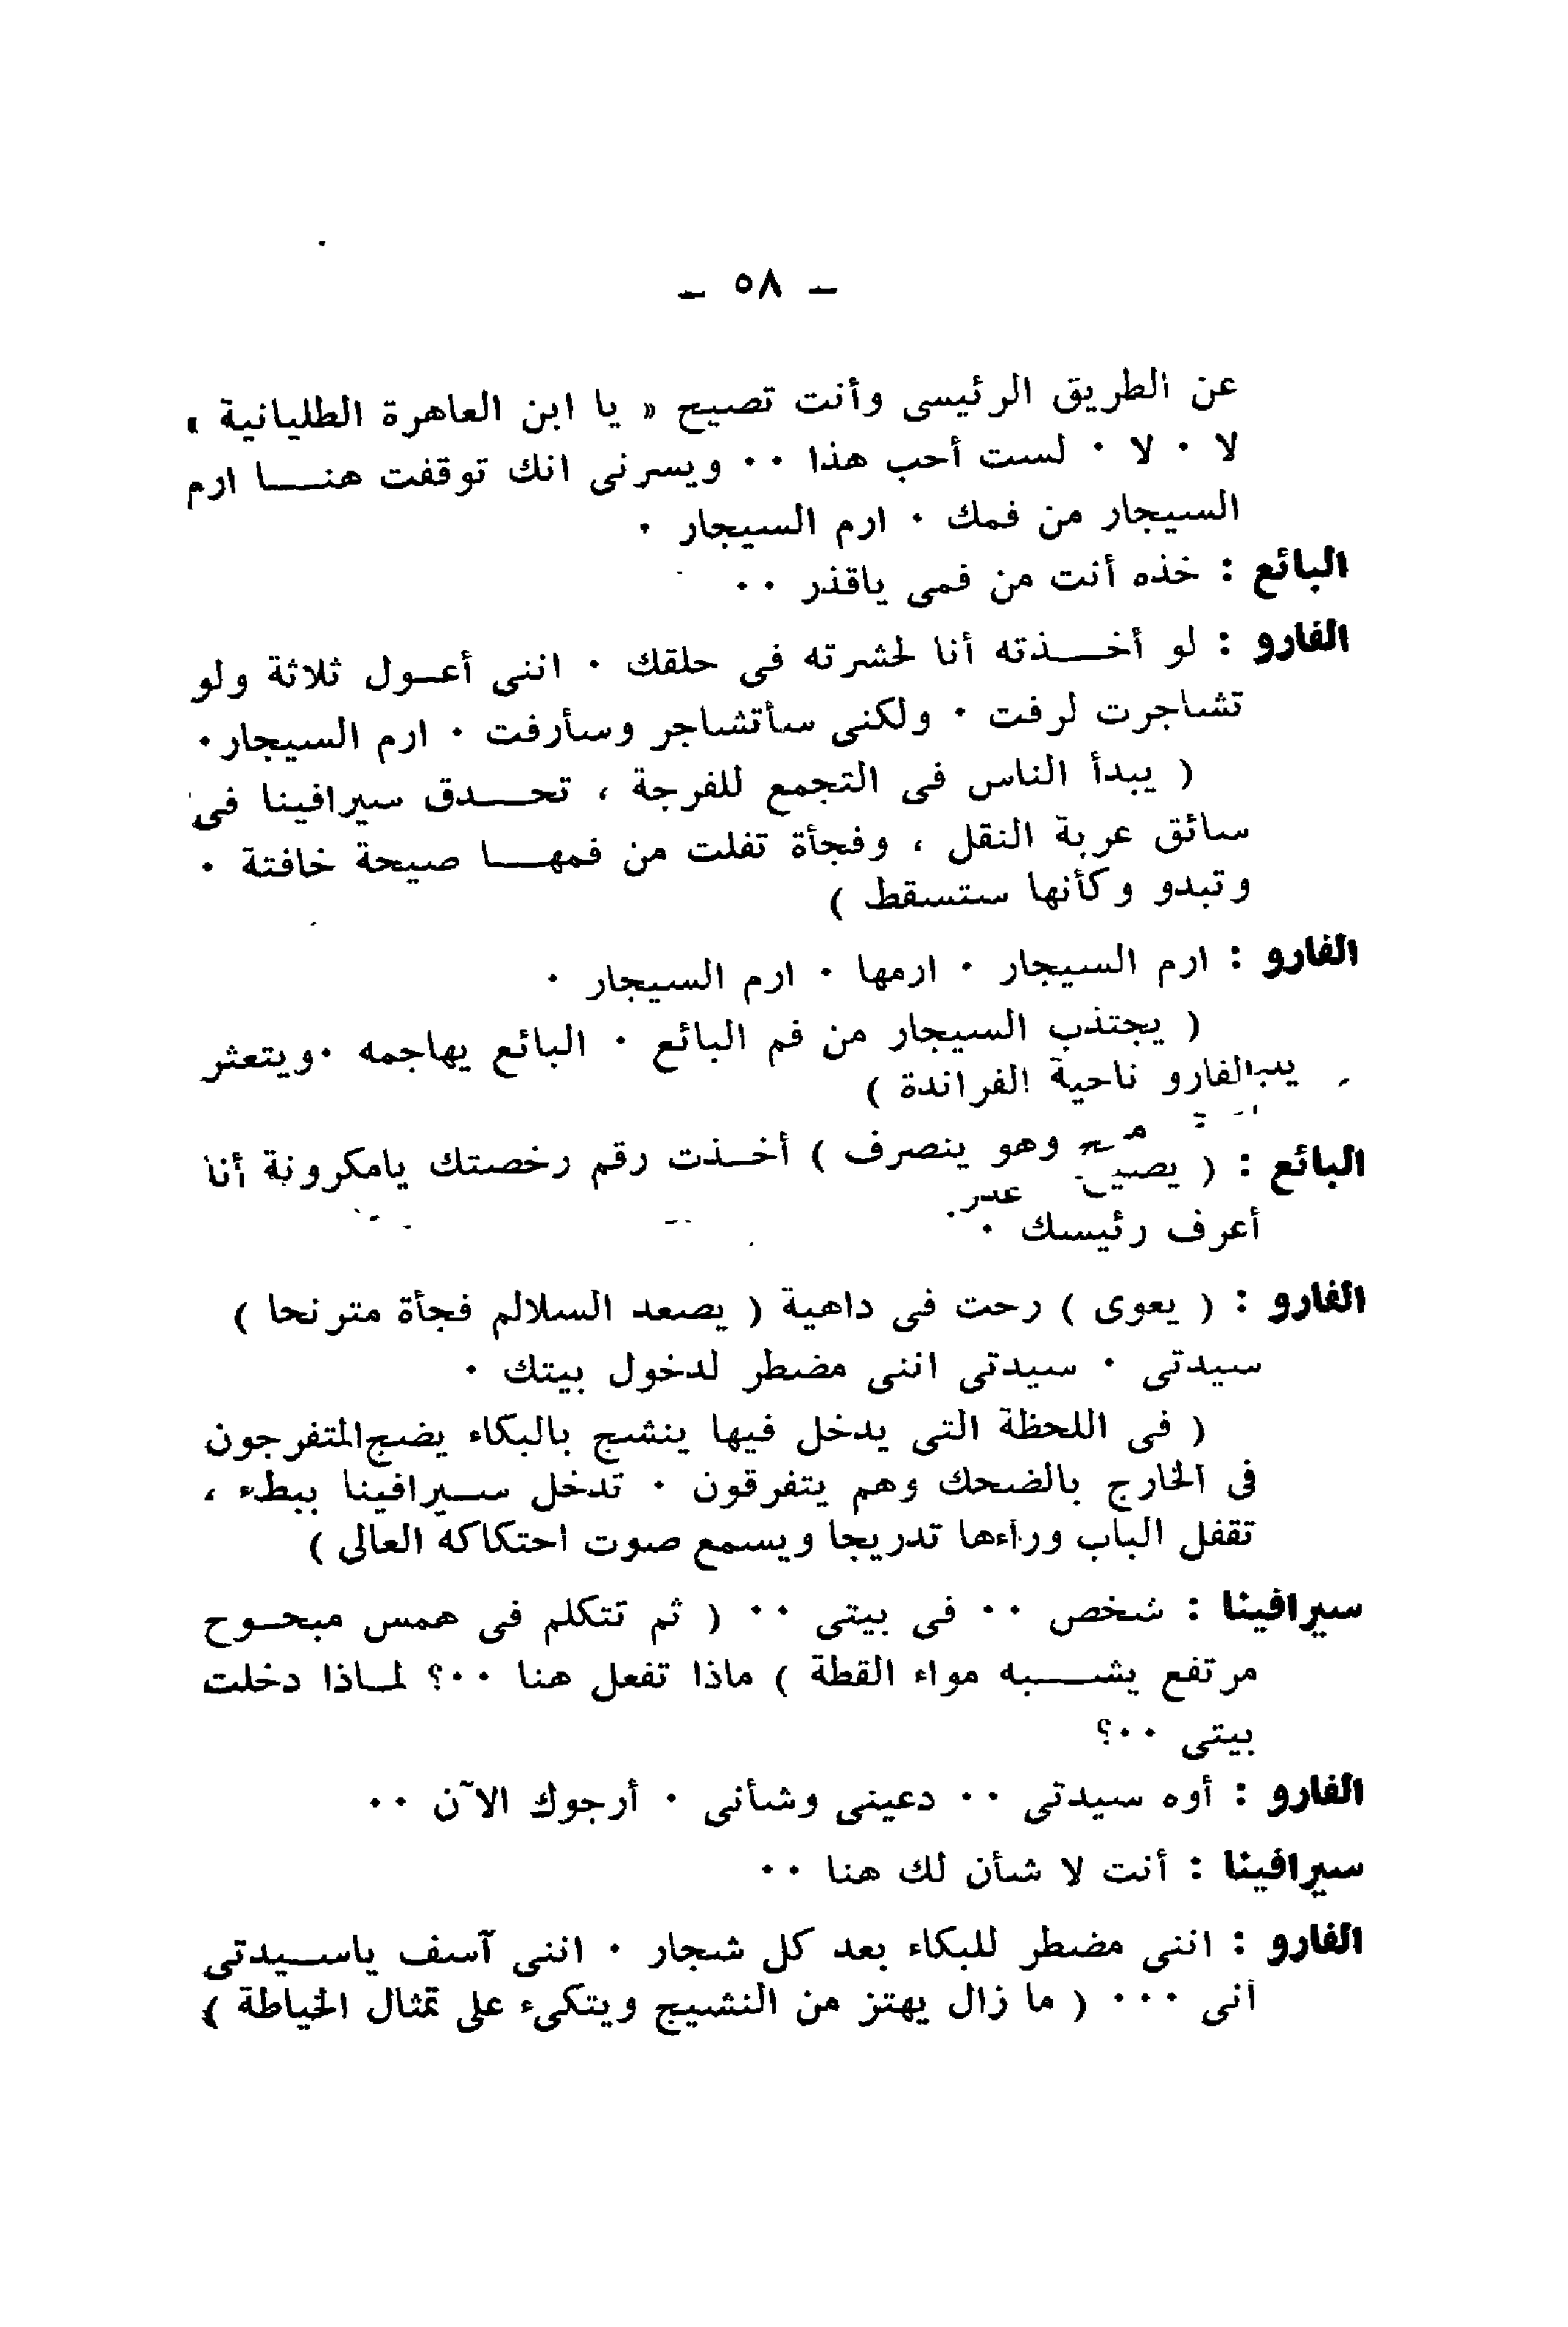 – ٥٨ –
عن الطريق الرئيسى وأنت تصيح « يا ابن العاهرة الطليانية »
لا ٠ لا ٠ لست أحب هذا ٠٠ ويسرنى انك توقفت هنا ارم
السيجار من فمك ٠ ارم السيجار ٠
البائع : خذه أنت من فمى ياقذر ٠٠
الفارو : لو أخذته أنا لحشرته فى حلقك ٠ اننى أعول ثلاثة ولو
تشاجرت لرفت ٠ ولكنى سأتشاجر وسأرفت ٠ ارم السيجار ٠
( يبدأ الناس فى التجمع للفرجة ، تحدق سيرافينا فى
سائق عربة النقل ، وفجأة تفلت من فمها صيحة خافتة ٠
وتبدو وكأنها ستسقط )
الفارو : ارم السيجار ٠ ارمها ٠ ارم السيجار ٠
( يجتذب السيجار من فم البائع ٠ البائع يهاجمه ٠ ويتعثر
الفارو ناحية الفراندة )
البائع : ( يصيح وهو ينصرف ) أخذت رقم رخصتك يامكرونة أنا
أعرف رئيسك ٠
الفارو : ( يعوى ) رحت فى داهية ( يصعد السلالم فجأة مترنحا )
سيدتى ٠ سيدتى اننى مضطر لدخول بيتك ٠
( فى اللحظة التى يدخل فيها ينشج بالبكاء يضج المتفرجون
فى الخارج بالضحك وهم يتفرقون ٠ تدخل سيرافينا ببطء ،
تقفل الباب وراءها تدريجا ويسمع صوت احتكاكه العالى )
سيرافينا : شخص ٠٠ فى بيتى ٠٠ ( ثم تتكلم فى همس مبحوح
مرتفع يشبه مواء القطة ) ماذا تفعل هنا ٠٠؟ لماذا دخلت
بيتى ٠٠؟
الفارو : أوه سيدتى ٠٠ دعينى وشأنى ٠ أرجوك الآن ٠٠
سيرافينا : أنت لا شأن لك هنا ٠٠
الفارو : اننى مضطر للبكاء بعد كل شجار ٠ اننى آسف ياسيدتى
أنى ٠٠٠ ( ما زال يهتز من النشيج ويتكىء على تمثال الخياطة )